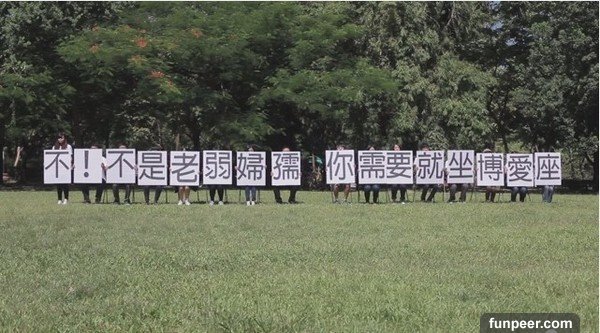 不！不是老弱婦孺 你需要就坐博愛座
funpeer.com